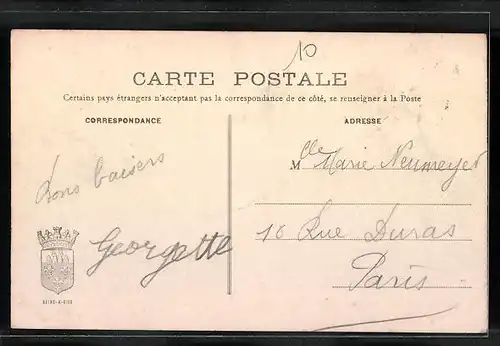 10
CARTE POSTALE
Certains pays étrangers n'acceptant pas la correspondance de ce côté, se renseigner à la Poste
CORRESPONDANCE
ADRESSE
Mlle Marie Neumeyer
Bons baisers
Georgette
10 Rue Duras
Paris